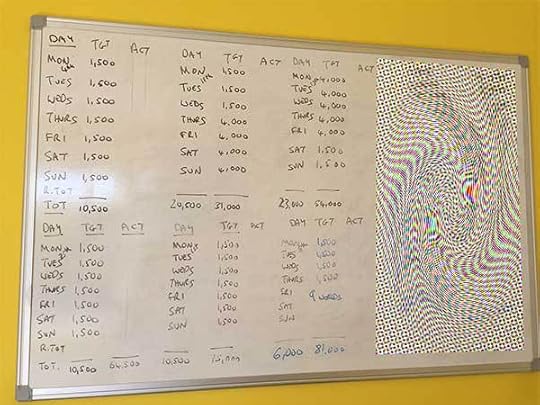 DAY TGT ACT
MON 4th 1,500
TUES 1,500
WEDS 1,500
THURS 1,500
FRI 1,500
SAT 1,500
SUN 1,500
R.TOT
TOT 10,500
DAY TGT ACT
MON 11th 1,500
TUES 1,500
WEDS 1,500
THURS 4,000
FRI 4,000
SAT 4,000
SUN 4,000
20,500 31,000
DAY TGT ACT
MON 4,000
TUES 4,000
WEDS 4,000
THURS 4,000
FRI 4,000
SAT 1,500
SUN 1,500
23,000 54,000
DAY TGT ACT
MON 1,500
TUES 1,500
WEDS 1,500
THURS 1,500
FRI 1,500
SAT 1,500
SUN 1,500
R.TOT
TOT. 10,500 64,500
DAY TGT ACT
MON 1,500
TUES 1,500
WEDS 1,500
THURS 1,500
FRI 1,500
SAT 1,500
SUN 1,500
10,500 75,000
DAY TGT ACT
MON 1,500
TUES 1,500
WEDS 1,500
THURS 1,500
FRI
SAT
SUN
6,000 81,000